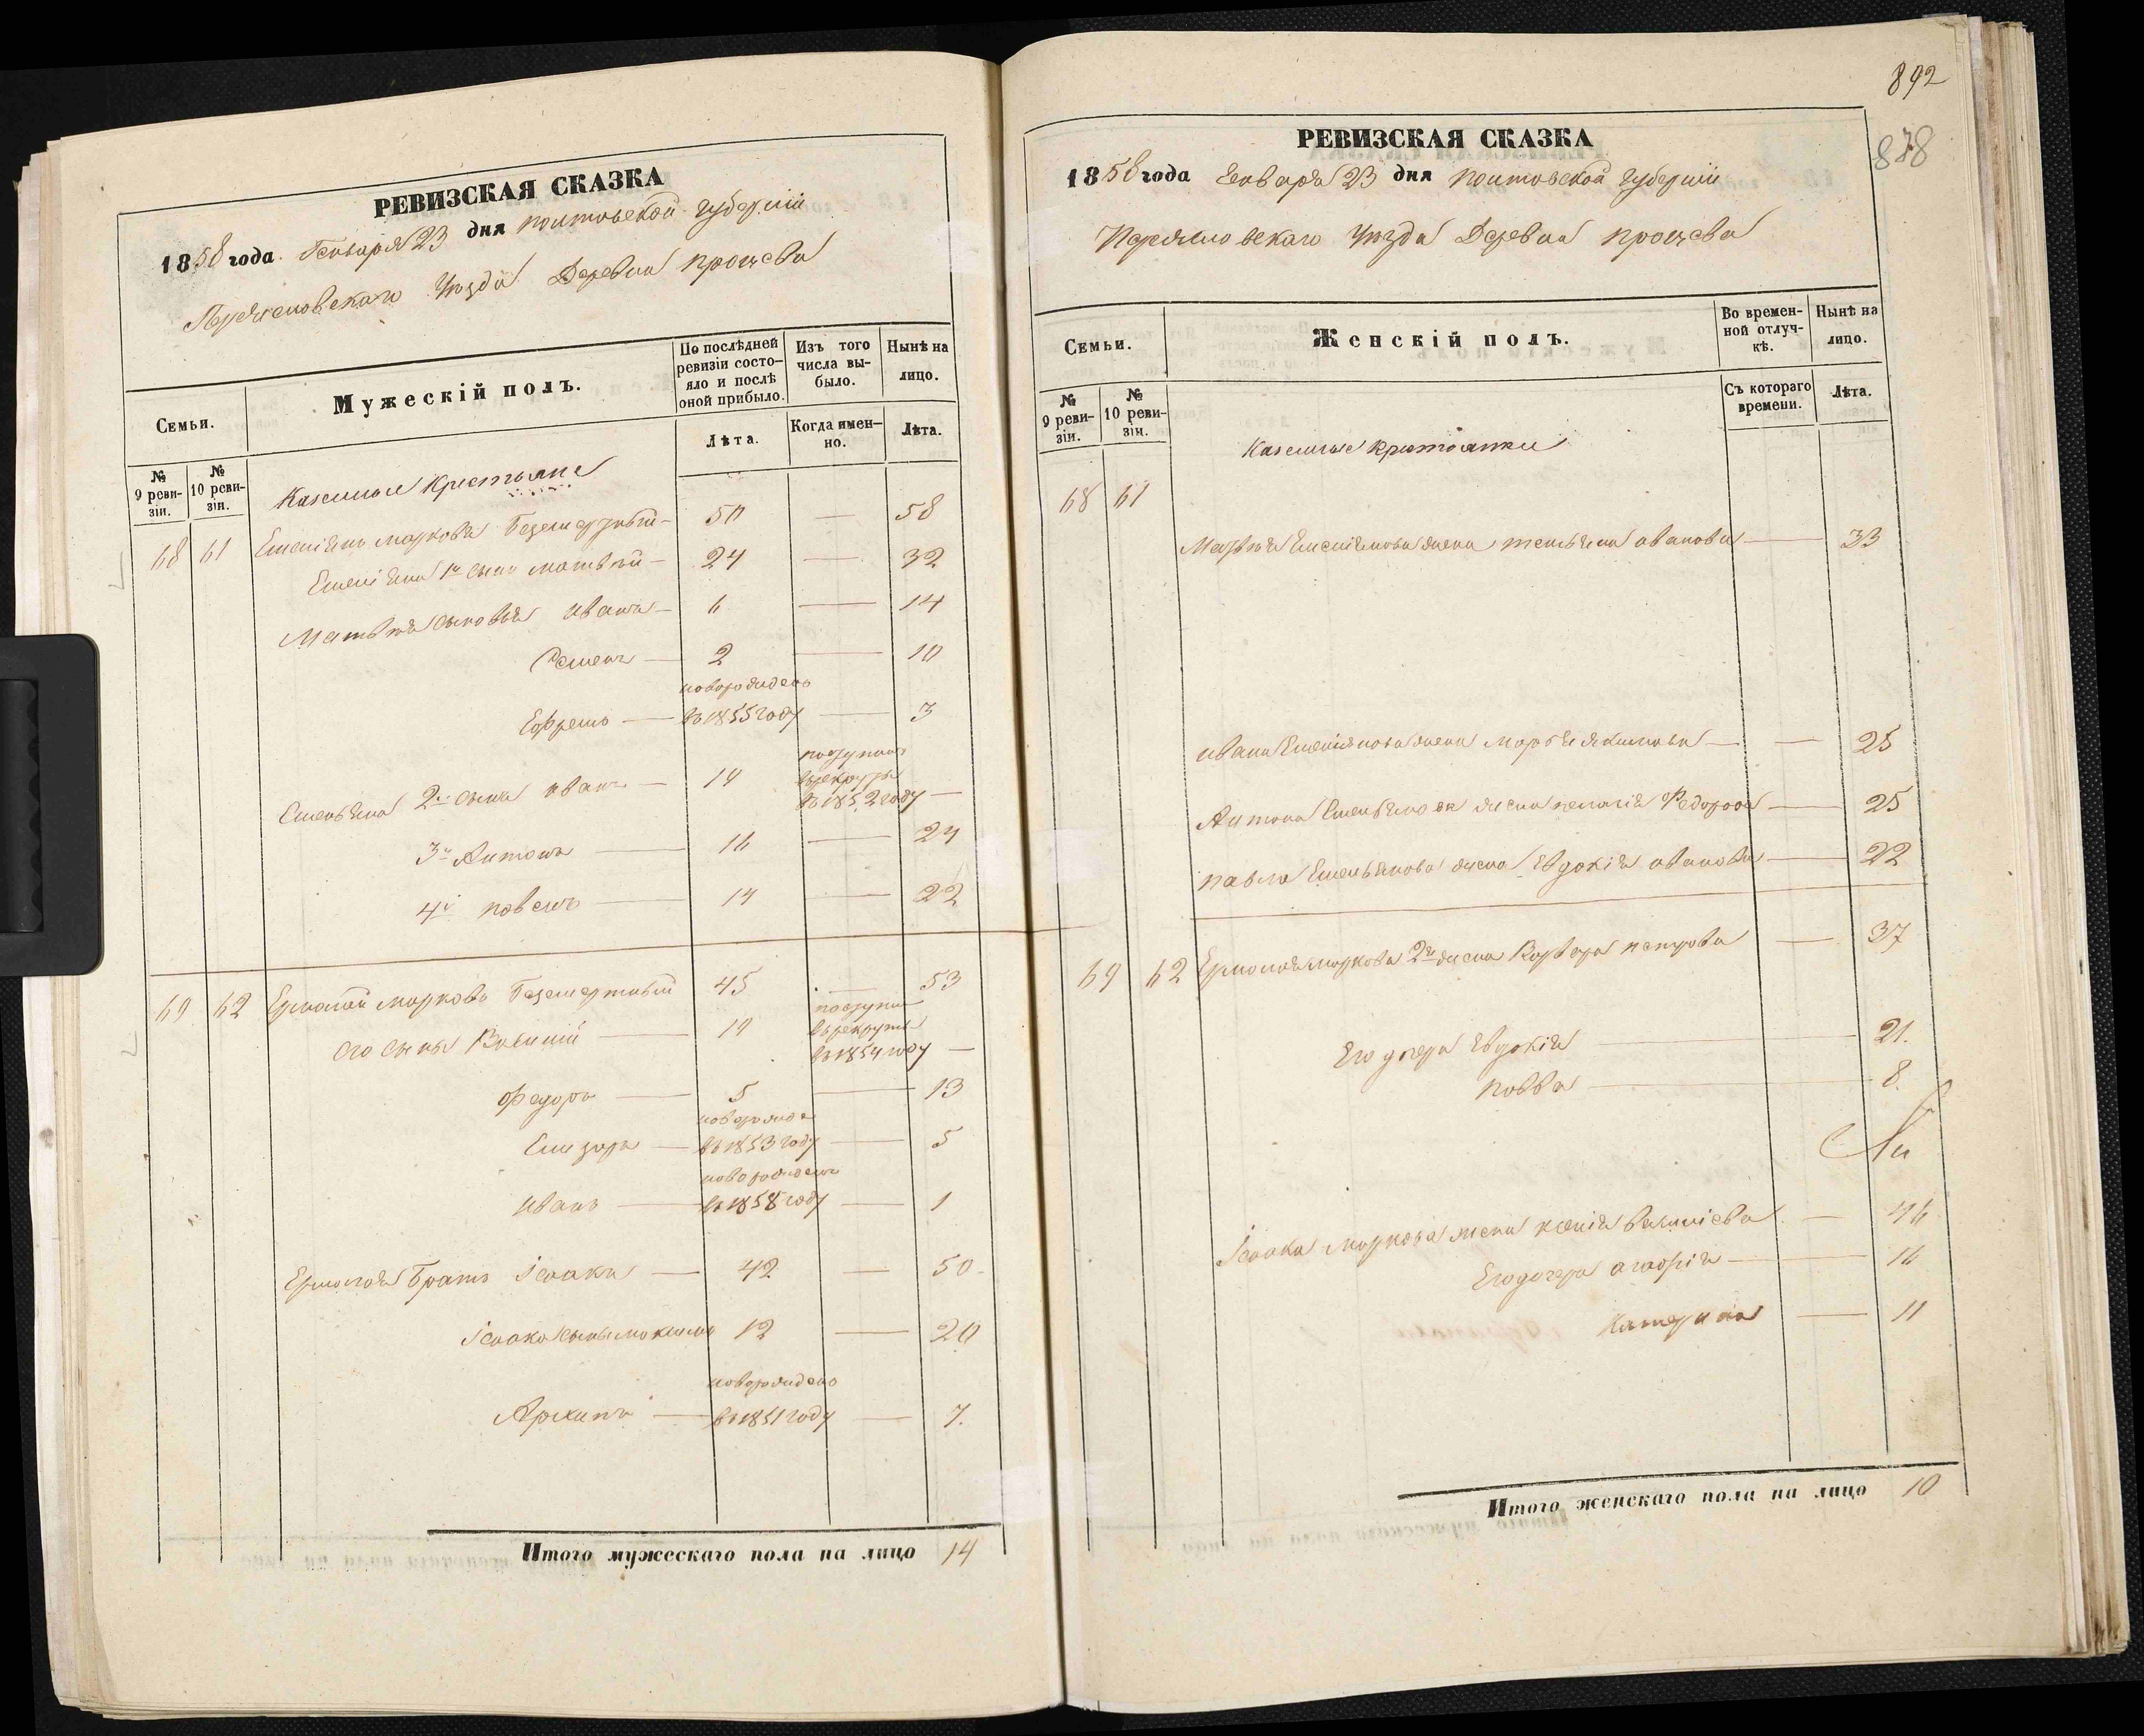 РЕВИЗСКАЯ СКАЗКА
1858 года Генваря 23 дня полтовской губернии
Переяславскаго Уезда Деревни процева
Семьи.
Мужескій полъ.
По послѣдней ревизіи состо-
яло и послѣ
оной прибыло.
Изъ того
числа вы-
было.
Нынѣ на
лицо.
№
9 реви-
зіи.
№
10 реви-
зіи.
Лѣта.
Когда имен-
но.
Лѣта.
Казенные Крестьяне
68 61 Емеліянъ марковъ 50 — 58
Емеліяна 1й сынъ матвей — 24 — 32
Матвея сыновья иванъ — 6 — 14
Семенъ — 2 — 10
новорожденъ
Ефремъ — въ 1855 году — 3
поступилъ
Емельяна 2й сынъ иванъ — 19 въ рекруты
въ 1852 году —
3й Антонъ — 16 — 24
4й павелъ — 14 — 22
69 62 Ермолай марковъ 45 — 53
поступил
его сыны 19 в рекруты
въ 1854 году —
Федоръ — 5 — 13
новорожде
Елизаръ — въ 1853 году — 5
новорожденъ
иванъ — въ 1858 году — 1
Ермолая братъ Ісаакъ — 42 — 50
Ісаака сыны 12 — 20
новорожденъ
Архипъ — въ 1851 году — 7.
Итого мужескаго пола на лицо 14
892
878
РЕВИЗСКАЯ СКАЗКА
1858 года Генваря 23 дня полтовской губернии
Переяславскаго Уезда Деревни процева
Семьи.
Женскій полъ.
Во времен-
ной отлуч-
кѣ.
Нынѣ на
лицо.
№
9 реви-
зіи.
№
10 реви-
зіи.
Съ котораго
времени.
Лѣта.
Казенные крестьянки
68 61
Матвея Емеліянова жена иванова — 33
ивана Емеліянова жена марья якимова — — 25
Антона Емельянова жена пелагія Федорова — 25
павла Емельянова жена Евдокія иванова — 22
69 62 Ермолая маркова 2я жена Варвара петрова — 37
Его дочери Евдокія — 21.
8.
Ісаака маркова жена ксенія — 46
Его дочери агафія — 16
Катерина — 11
Итого женскаго пола на лицо 10